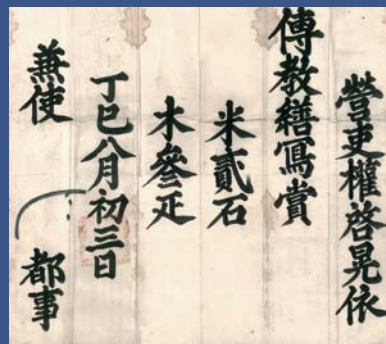 營吏權啓晃依
傳教繕寫賞
米貳石
木參疋
丁巳八月初三日
兼使 都事